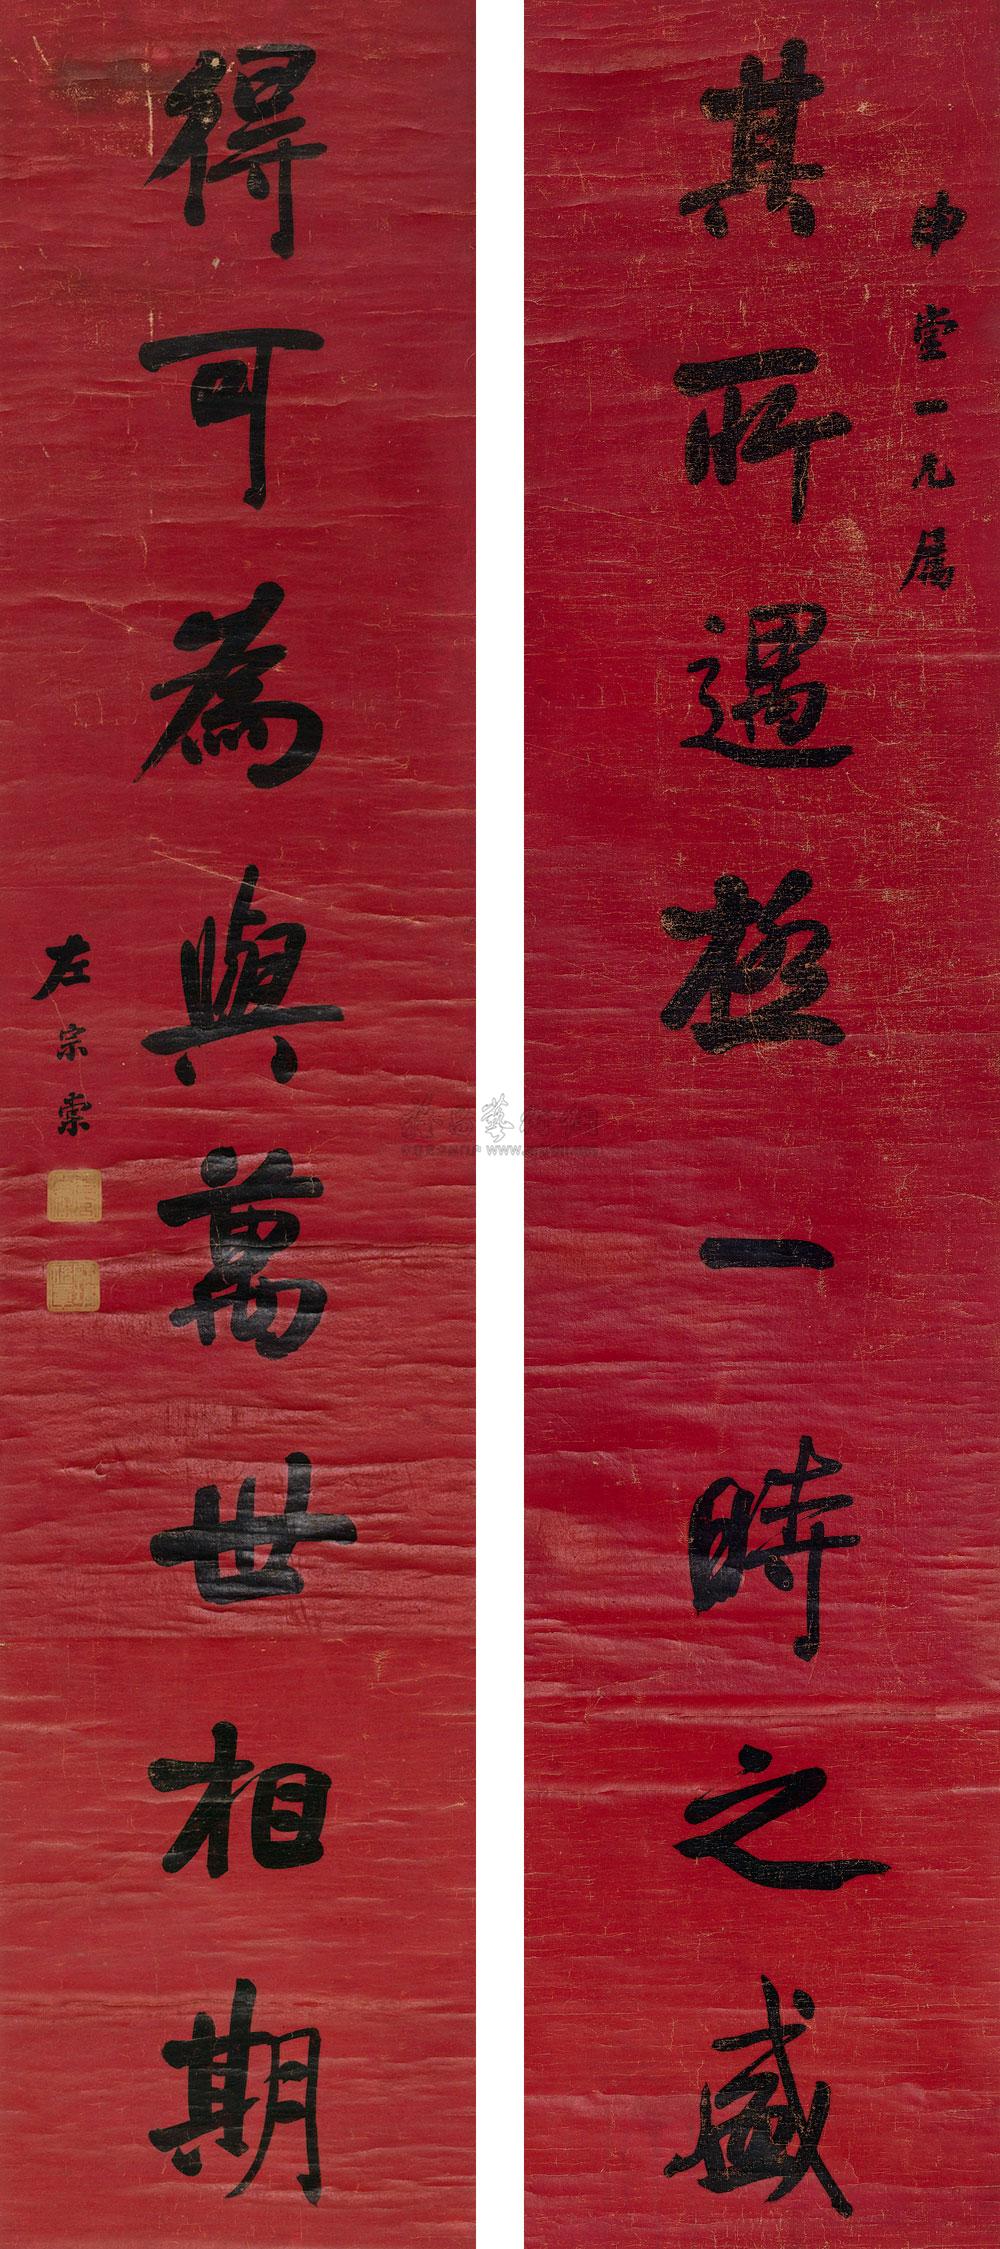 申堂一兄属
其所遇極一時之盛
得可為與萬世相期
左宗棠